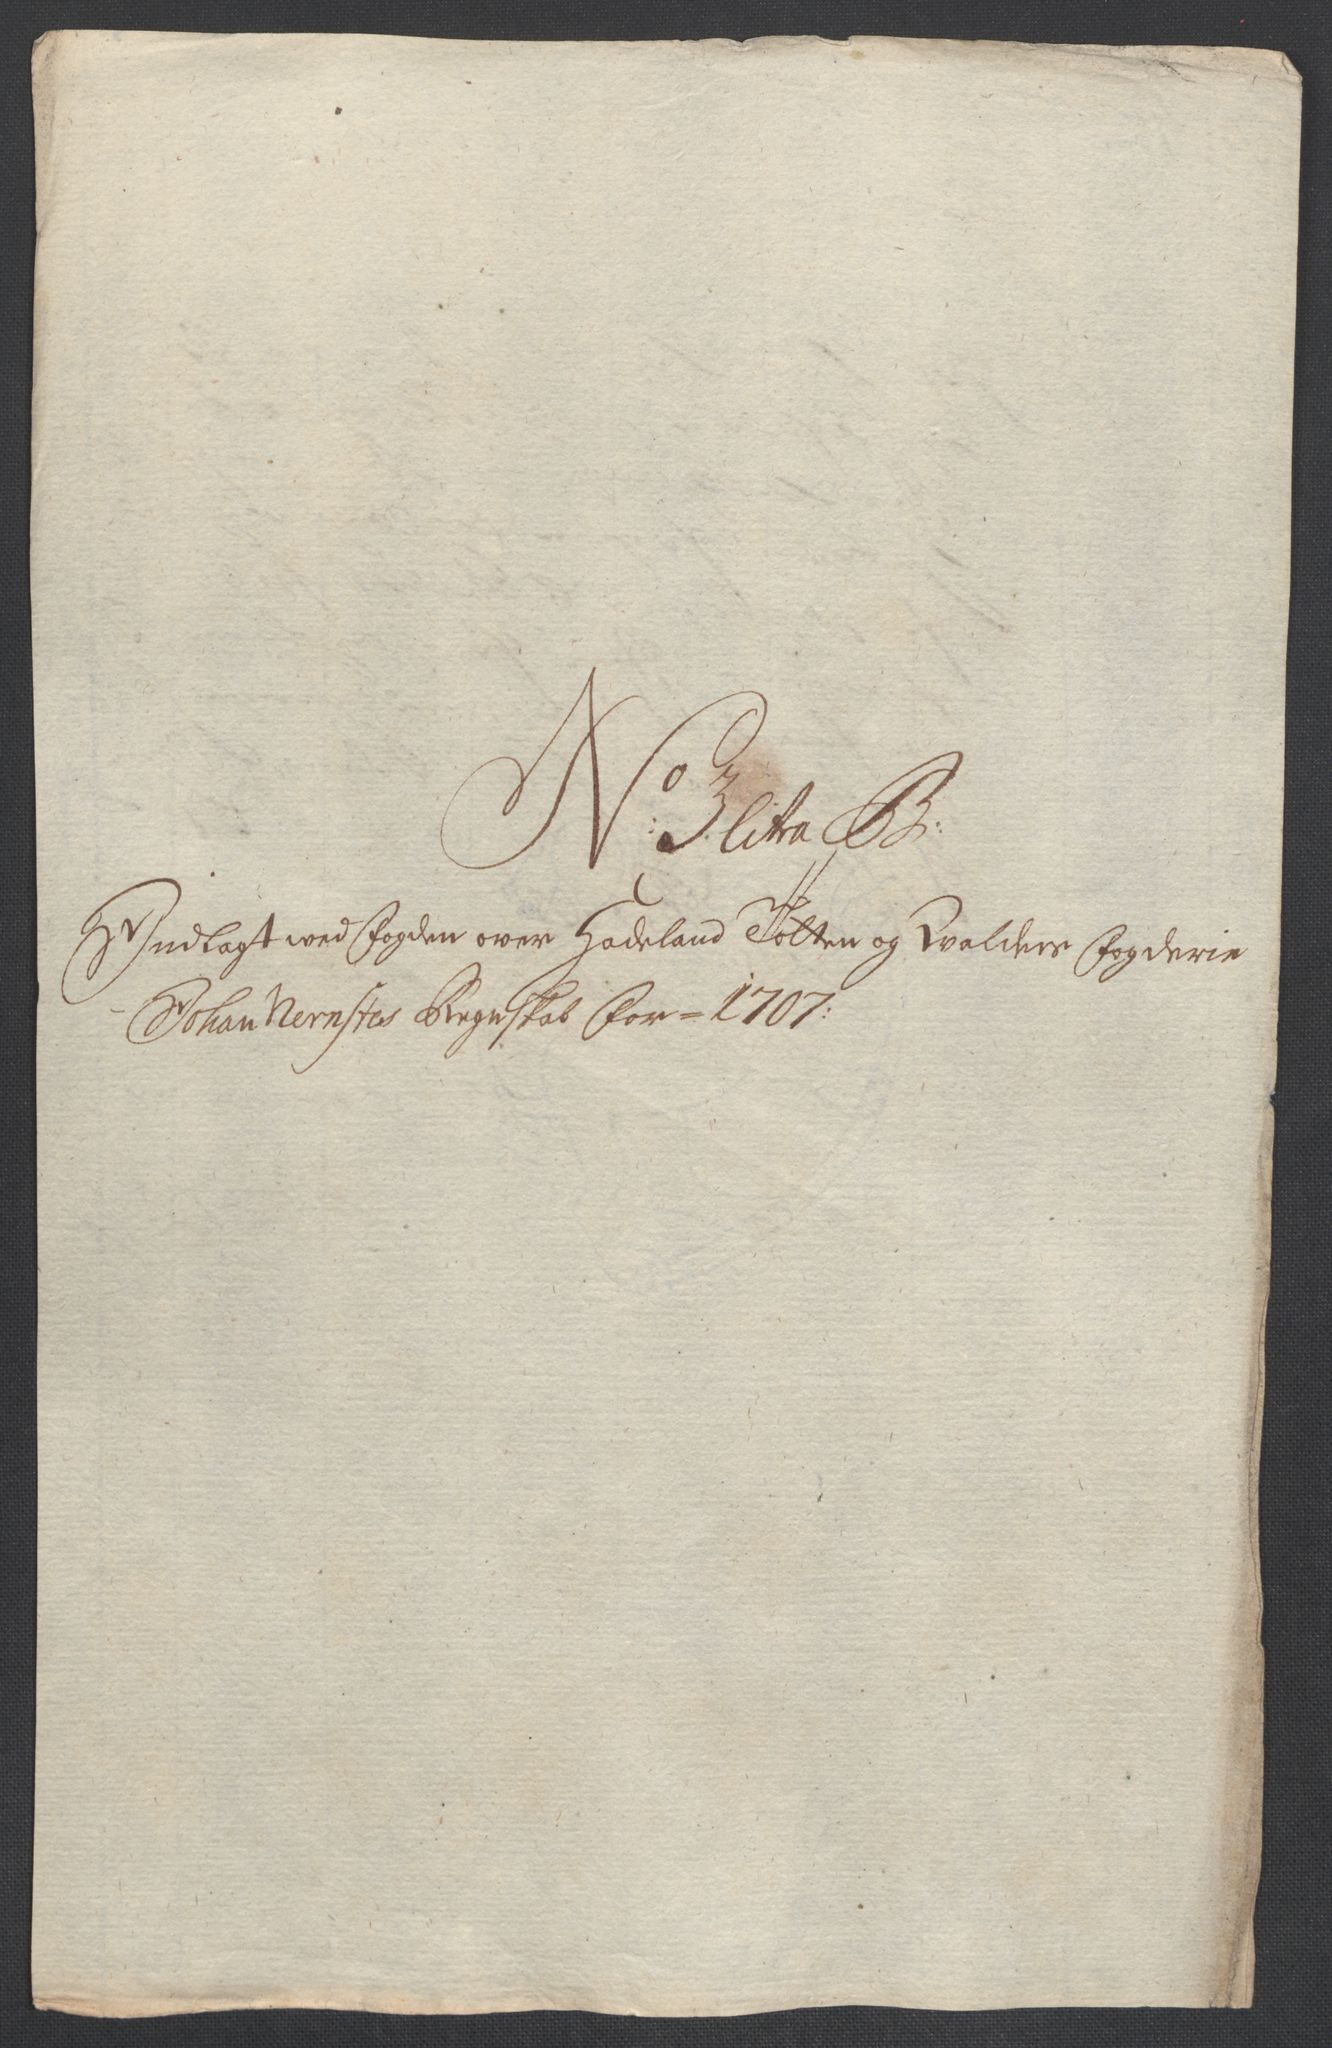 No: 3 litra B:
Indlagt wed fogden over Hadeland Totten og Walders fogderie
Johan Nernstes Regnskab for = 1707: